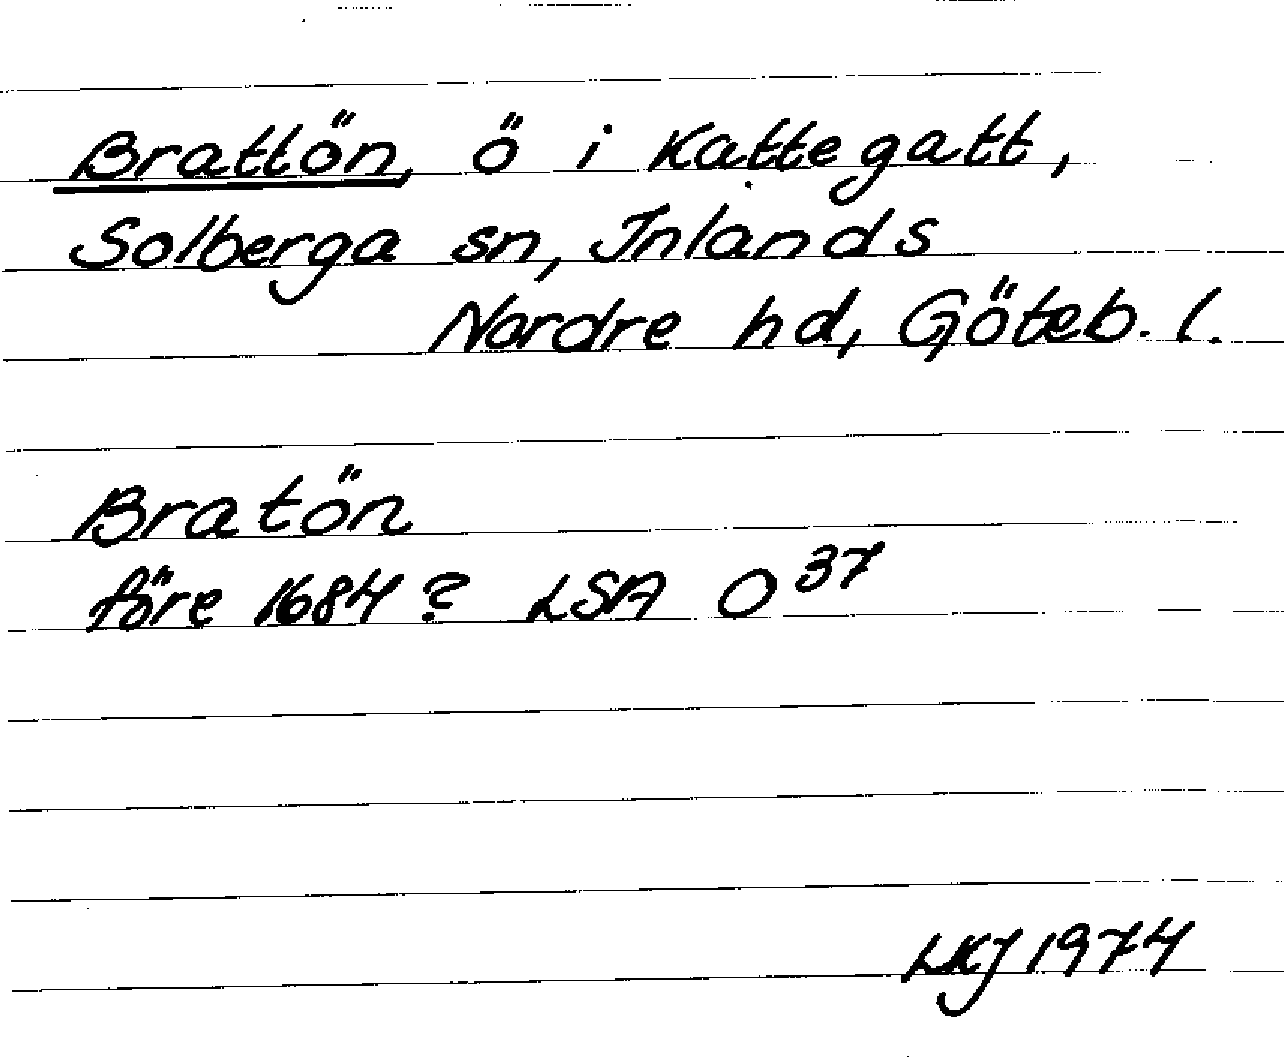 Brattön, ö i Kattegatt,
Solberga sn, Inlands
Nordre hd, Göteb. l.
Bratön
före 1684? LSA O 37
LKJ 1974